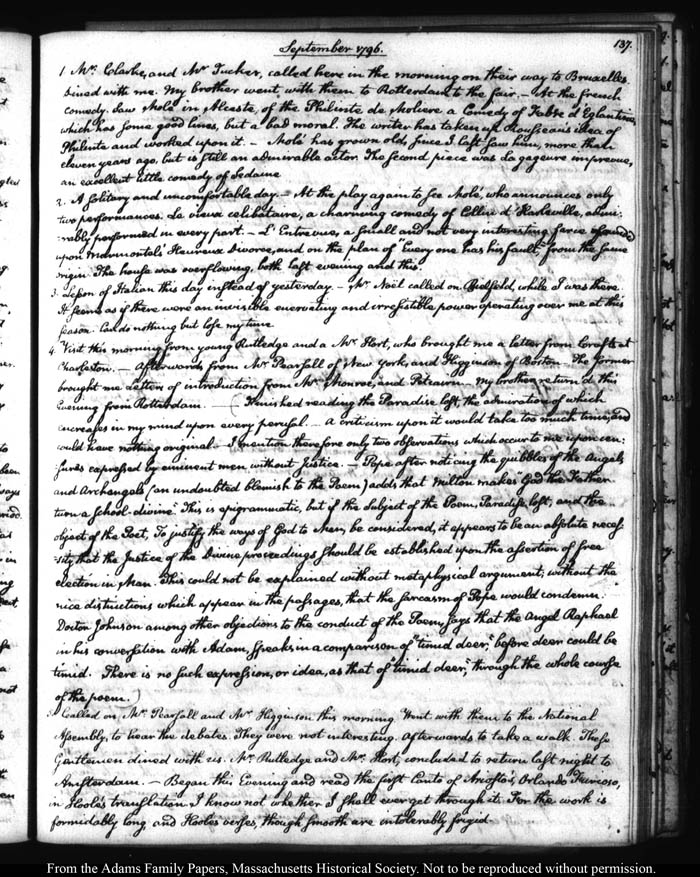 September 1796.
137.
1. Mr. Clarke, and Mr Tucker, called here in the morning on their way to Bruxelles,
dined with me. My brother went with them to Rotterdam to the fair. — At the french
comedy. Saw Molé in Alceste, of the Philinte de Moliere a Comedy of Fabre d'Eglantine,
which has some good lines, but a bad moral. The writer has taken up Rousseau's idea of
Philinte and worked upon it. — Molé has grown old, since I last saw him, more than
eleven years ago, but is still an admirable actor. The second piece was La gageure imprevue,
an excellent little comedy of Sedaine
2. A solitary and uncomfortable day. — At the play again to see Molé, who announces only
two performances. Le vieux celibataire, a charming comedy of Collin d'Harleville, admi-
rably performed in every part. — L'Entrevue, a small and not very interesting farce founded
upon Marmontel's Heureux Divorce, and on the plan of "Every one has his fault," from the same
origin. The house was overflowing, both last evening and this.
3. Lesson of Italian this day instead of yesterday. — Mr Noël called on Bielfeld, while I was there.
It seems as if there were an invisible enervating and irresistible power operating over me at this
season. Can do nothing but lose my time.
4. Visit this morning from young Rutledge and a Mr. Hort, who brought me a letter from Crafts at
Charleston. — Afterwards from Mr. Pearsall of New York, and Higginson of Boston. The former
brought me letters of introduction from Mr. Monroe, and Pitcairn. My brother return'd this
Evening from Rotterdam. — (Finished reading the Paradise lost, the admiration of which
encreases in my mind upon every perusal. — A criticism upon it would take too much time, and
would have nothing original. I mention therefore only two observations which occur to me upon cen-
sures expressed by eminent men, without Justice. — Pope after noticing the quibbles of the Angels
and Archangels (an undoubted blemish to the Poem) adds that Milton makes "God the Father
turn a school-divine." This is epigrammatic, but if the subject of the Poem, Paradise lost, and the
object of the Poet, To justify the ways of God to Men, be considered, it appears to be an absolute neces-
sity, that the Justice of the Divine proceedings should be established upon the assertion of free
election in Man. This could not be explained without metaphysical argument; without the
nice distinctions which appear in the passages, that the sarcasm of Pope would condemn.
Doctor Johnson among other objections to the conduct of the Poem, says that the Angel Raphael
in his conversation with Adam, speaks in a comparison of "timid deer," before deer could be
timid. There is no such expression, or idea, as that of "timid deer," through the whole course
of the poem.)
5. Called on Mr. Pearsall and Mr. Higginson this morning. Went with them to the National
Assembly, to hear the debates. They were not interesting. Afterwards to take a walk. These
Gentlemen dined with us. Mr. Rutledge and Mr. Hort, concluded to return last night to
Amsterdam. — Began this Evening and read the first Canto of Ariosto's, Orlando Furioso,
in Hoole's translation. I know not whether I shall ever get through it. For the work is
formidably long, and Hooles verses, though smooth are intolerably frigid.
From the Adams Family Papers, Massachusetts Historical Society. Not to be reproduced without permission.